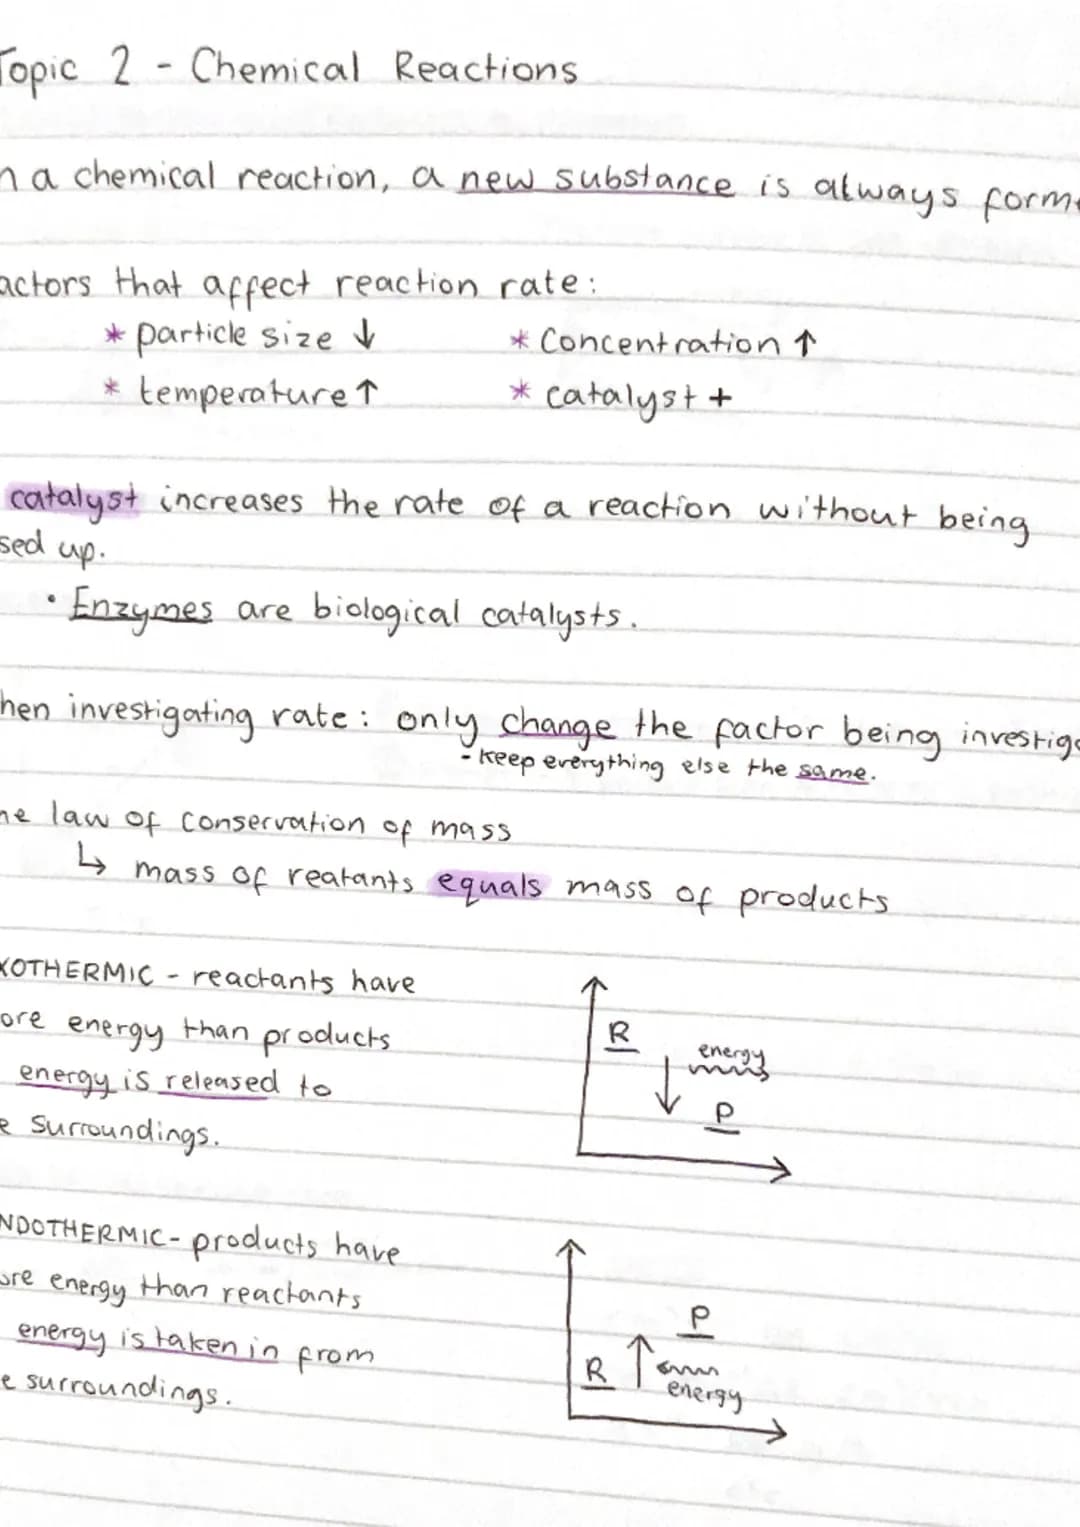 Topic 2 - Chemical Reactions
n a chemical reaction, a new substance is always forme
actors that affect reaction rate:
* particle size ↓ * Concentration ↑
* temperature ↑ * catalyst +
catalyst increases the rate of a reaction without being
sed up.
• Enzymes are biological catalysts.
hen investigating rate: only change the factor being investiga
- keep everything else the same.
he law of conservation of mass
↳ mass of reatants equals mass of products
XOTHERMIC - reactants have
ore energy than products
energy is released to
e surroundings.
R
energy
P
NDOTHERMIC - products have
ore energy than reactants
energy is taken in from
e surroundings.
P
R
energy